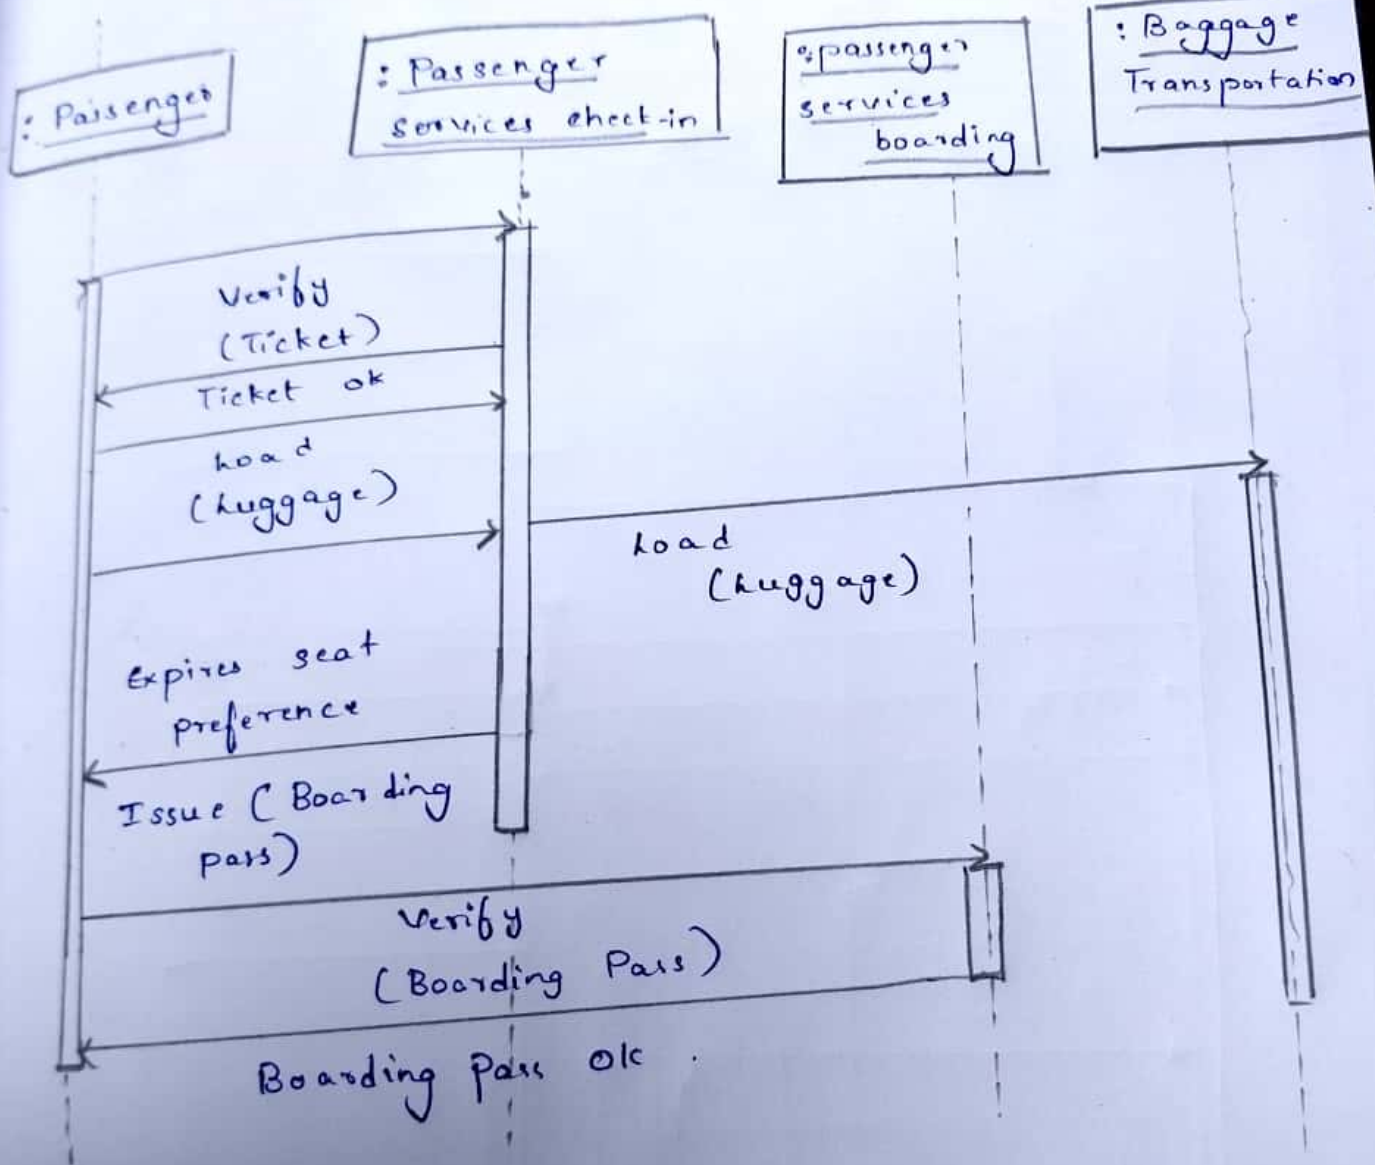 : Passenger
: Passenger
services check-in
: passenger
services
boarding
: Baggage
Transportation
Verify
(Ticket)
Ticket ok
Load
(Luggage)
Load
(Luggage)
Expires seat
preference
Issue (Boarding
pass)
Verify
(Boarding Pass)
Boarding Pass Ok.